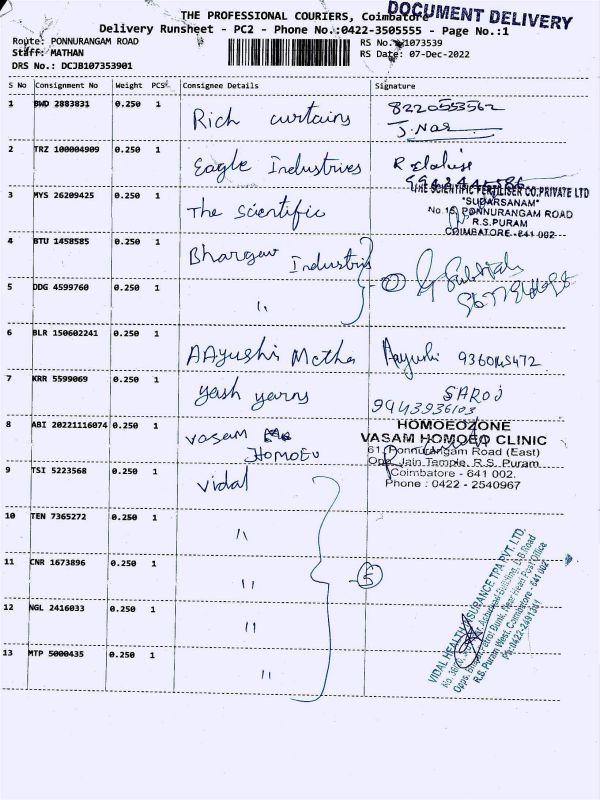 THE PROFESSIONAL COURIERS, Coimbatore
DOCUMENT DELIVERY
Delivery Runsheet - PC2 - Phone No.:0422-3505555 - Page No.:1
Route: PONNURANGAM ROAD
RS No.: 1073539
Staff: MATHAN
RS Date: 07-Dec-2022
DRS No.: DCJB107353901
S No Consignment No Weight PCS Consignee Details Signature
1 BWD 2883831 0.250 1 Rich curtains 8220553562
J. Nar
2 TRZ 100004909 0.250 1 Eagle Industries
3 MYS 26209425 0.250 1 The Scientific
THE SCIENTIFIC FERTILISER CO.PRIVATE LTD
"SUDARSANAM"
No.15, PONNURANGAM ROAD
R.S.PURAM
COIMBATORE -641 002
4 BTU 1458585 0.250 1 Bhargav Industries
5 DDG 4599760 0.250 1 "
2
6 BLR 150602241 0.250 1 AAyushi Metha Aayushi
7 KRR 5599069 0.250 1 yash yarns SAROJ
9443936103
8 ABI 20221116074 0.250 1 vasam
HOMOEO
HOMOEOZONE
VASAM HOMOEO CLINIC
61, Ponnurangam Road (East)
Opp. Jain Temple, R.S. Puram
Coimbatore - 641 002.
Phone : 0422 - 2540967
9 TSI 5223568 0.250 1 vidal
10 TEN 7365272 0.250 1 "
11 CNR 1673896 0.250 1 "
5
12 NGL 2416033 0.250 1 "
13 MTP 5000435 0.250 1 "
VIDAL HEALTH INSURANCE TPA PVT. LTD.
Building, D.B.Road
Bank, Near Head Post Office
R.S. Puram West, Coimbatore - 641 002